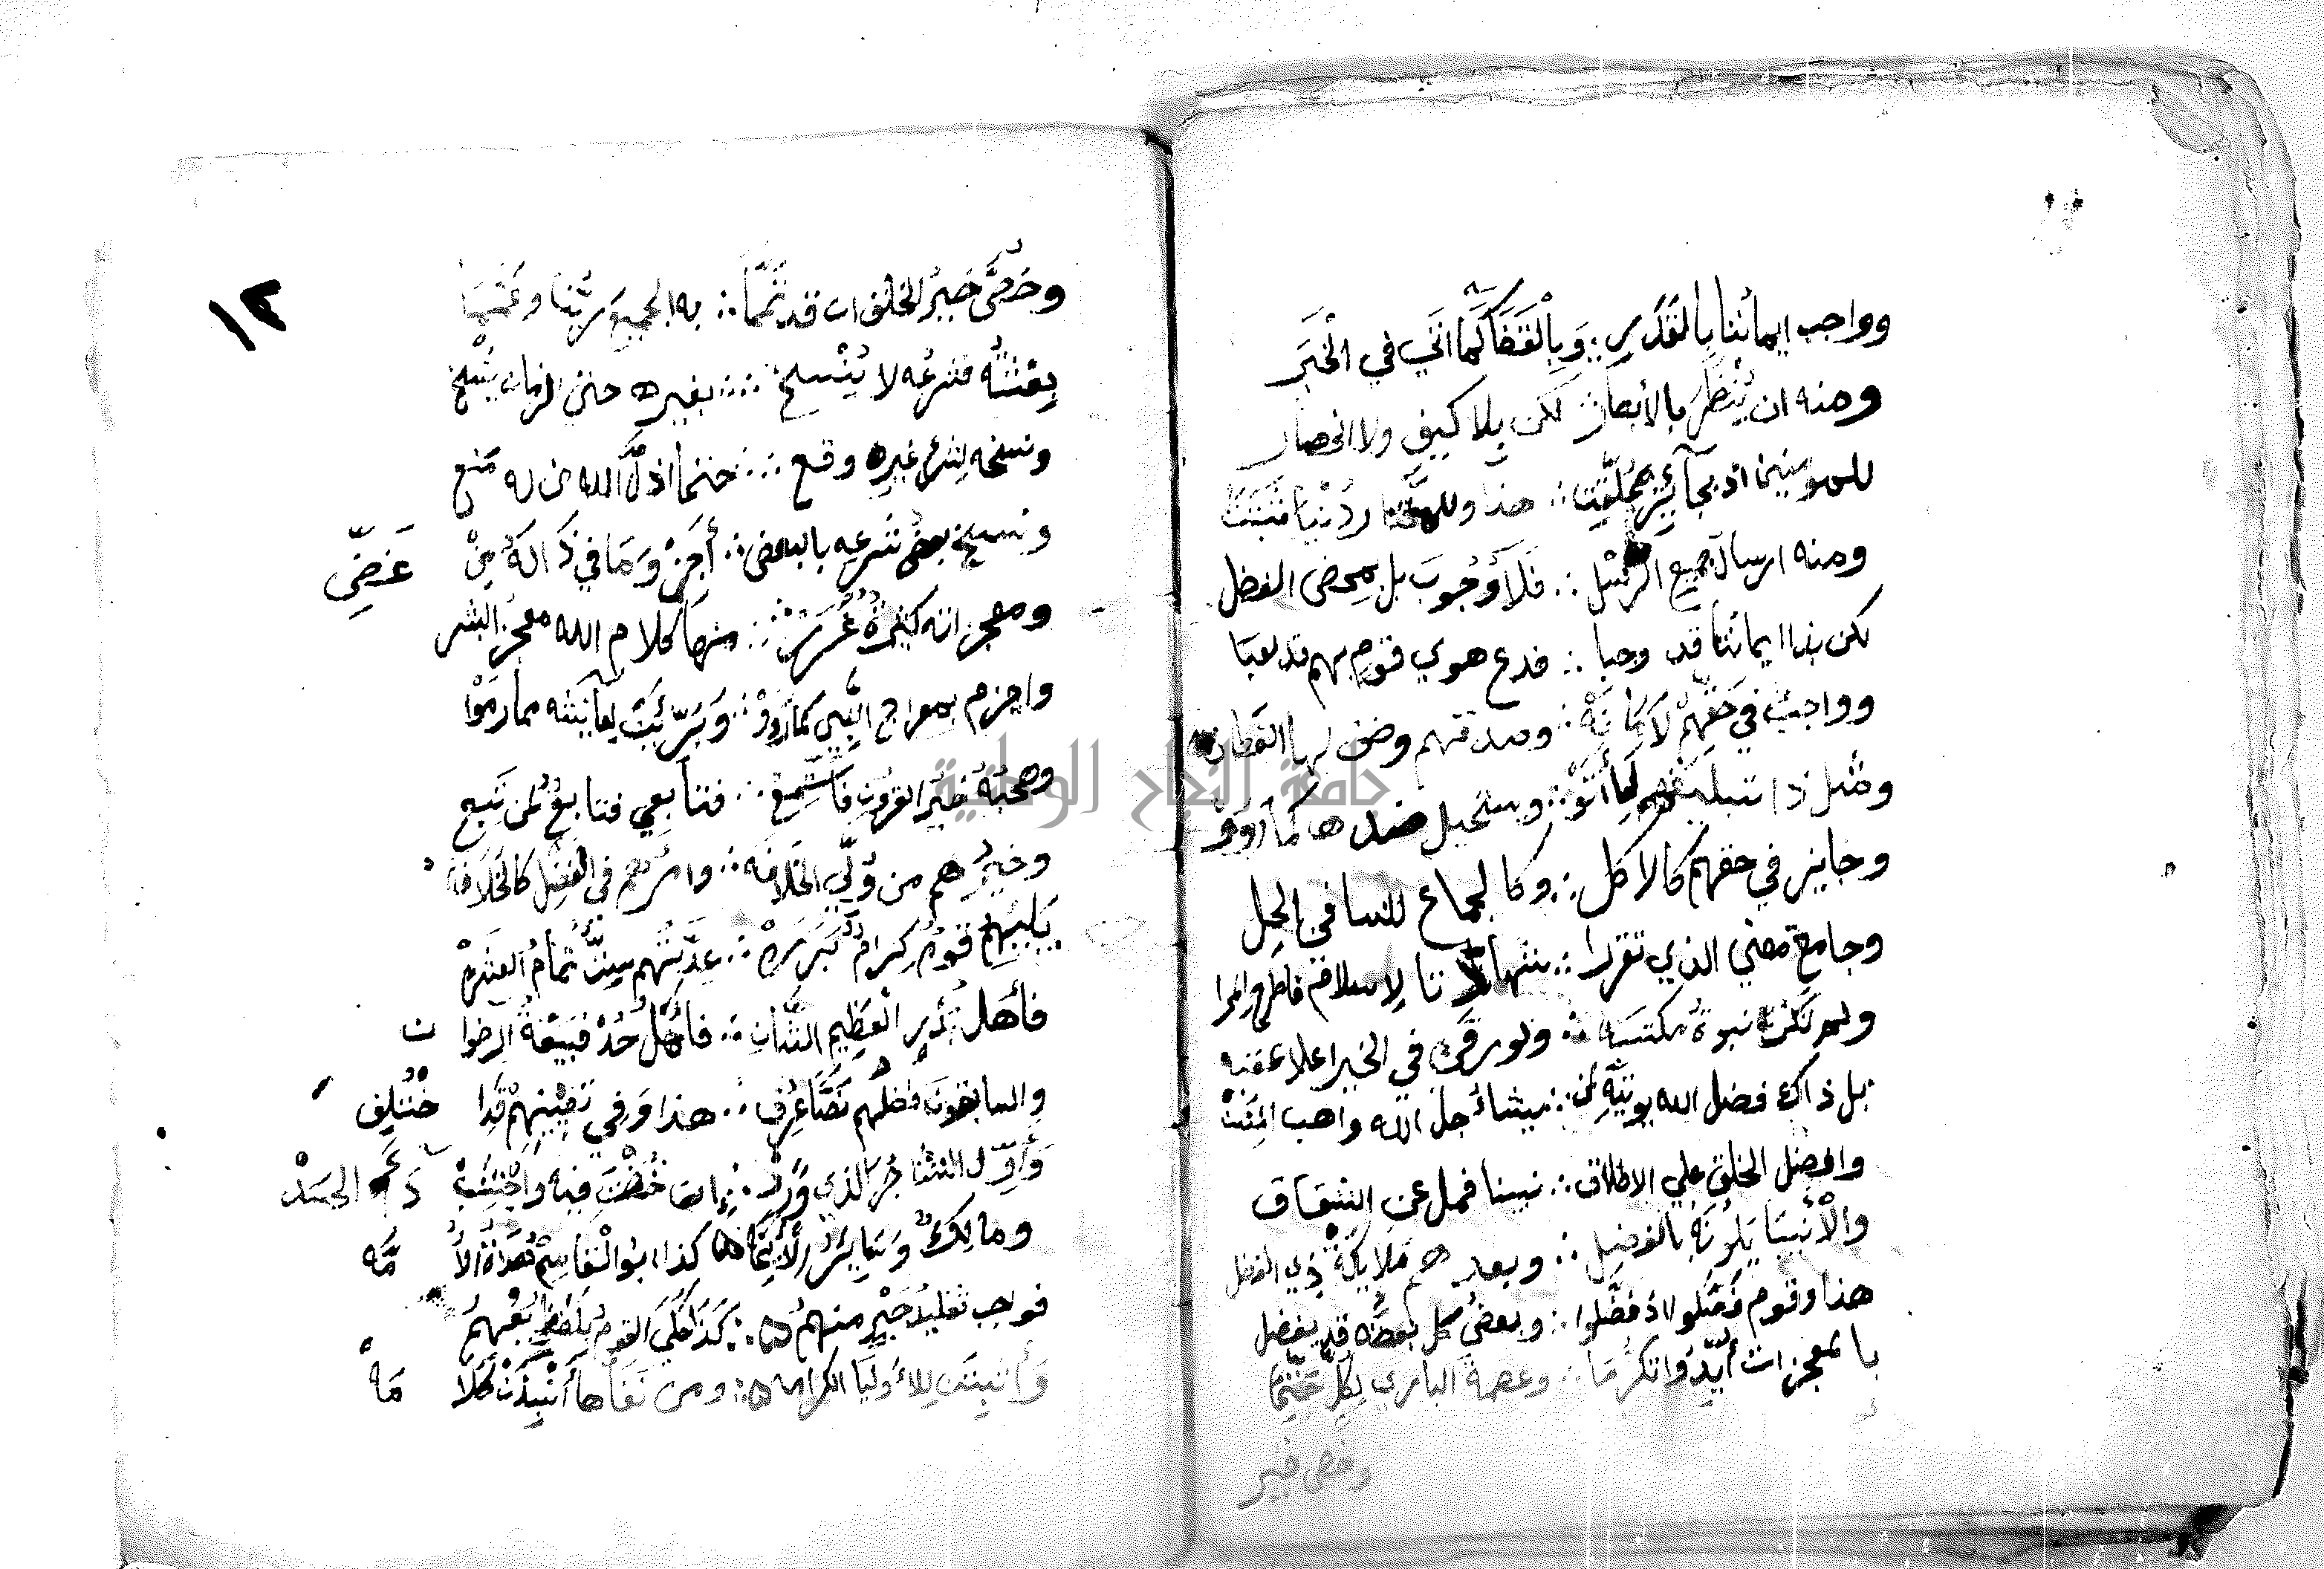 وواجب ايماننا بالقدر ∴ وبالقضا كما اتي في الخبر
ومنه ان ينظر بالابصار لكن بلا كيف ولا انحصار
للمومنين اذ بجائز علقت ∴ هذا وللمختار دنيا ثبتت
ومنه ارسال جميع الرسل ∴ فلا وجوب بل بمحض الفضل
لكن بذا ايماننا قد وجبا ∴ فدع هوي قوم بهم قد لعبا
وواجب في حقهم الامانه ∴ وصدقهم وضف لها الفطانه
ومثل ذا تبليغهم لما أتوا ∴ ويستحيل ضدها كما رووا
وجايز في حقهم كالاكل ∴ وكالجماع للنسا في الحل
وجامع معني الذي تقررا ∴ شهادتا الاسلام فاطرح المرا
ولم تكن نبوة مكتسبه ∴ ولو رقي في الخير اعلا عقبه
بل ذاك فضل الله يوتيه لمن ∴ يشاء جل الله واهب المنن
وافضل الخلق علي الاطلاق ∴ نبينا فمل عن الشقاق
والأنبيا يلونه بالفضل ∴ وبعدهم ملايكة ذي الفضل
هذا وقوم فصلوا اذ فضلوا ∴ وبعض كل بعضه قد يفضل
بالمعجزات أيدوا تكرما ∴ وعصمة الباري لكل حتما
وخص خير
١٢
وخص خير الخلق ان قد تمما ∴ به الجميع ربنا وعمما
بعثته فشرعه لا ينسخ ∴ بغيره حتي الزمان ينسخ
ونسخه لشرع غيره وقع ∴ حتما اذل الله من له منع
ونسخ بعض شرعه بالبعض ∴ أجز وما في ذا له من غض
ومعجزاته كثيرة غرر ∴ منها كلام الله معجز البشر
واجزم بمعراج النبي كما رووا ∴ وبرئن لعايشه مما رموا
وصحبه خير القرون فاستمع ∴ فتابعي فتابع لمن تبع
وخيرهم من ولي الخلافه ∴ وامرهم في الفضل كالخلافه
يليهم قوم كرام برره ∴ عدتهم ست تمام العشره
فأهل بدر العظيم الشان ∴ فأهل أحد فبيعة الرضوان
والسابقون فضلهم نصا عرف ∴ هذا وفي تعيينهم قد اختلف
وأول التشاجر الذي ورد ∴ ان خضت فيه واجتنب داء الحسد
ومالك وسايــر الأئمه كذا ابو القاسم هداة الأمه
فواجب تقليد حبر منهم ∴ كذا حكي القوم بلفظ يفهم
وأثبتن للاوليا الكرامه ∴ ومن نفاها أنبذن كلامه